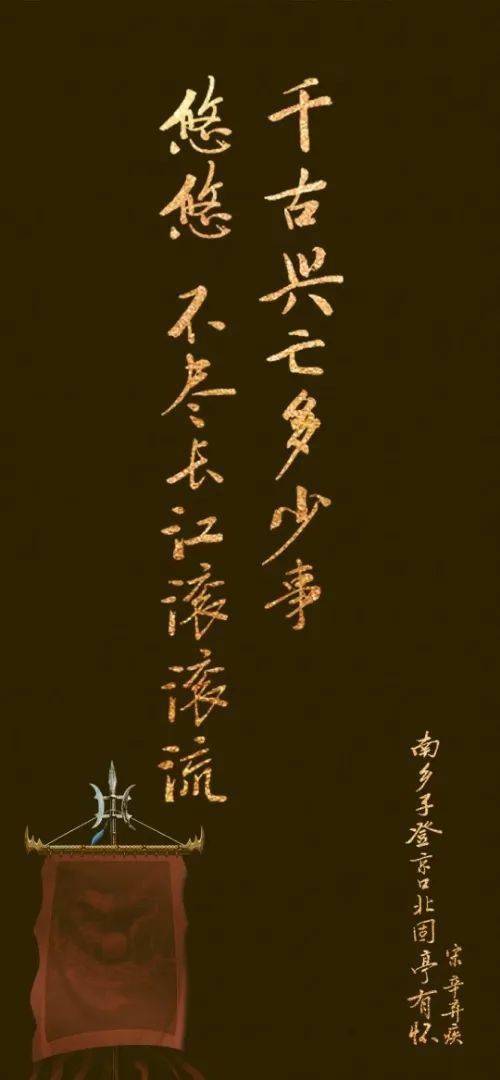 千古兴亡多少事
悠悠 不尽长江滚滚流
南乡子登京口北固亭有怀
宋 辛弃疾